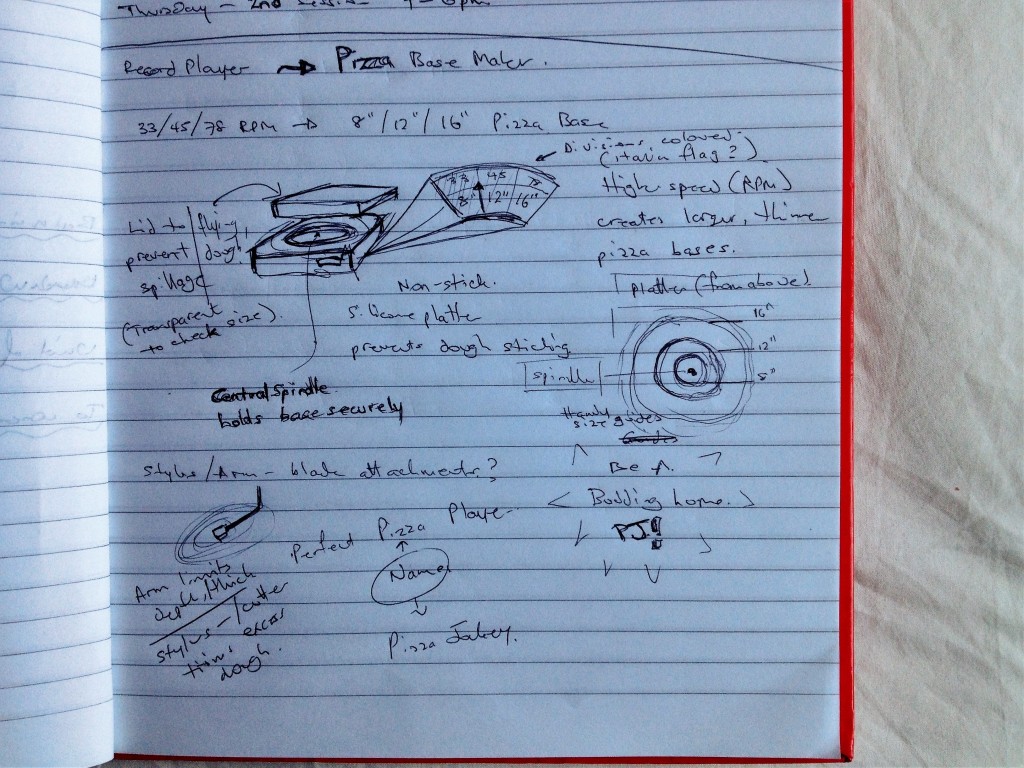 Thursday - 2nd Session
Record Player → Pizza Base Maker.
33/45/78 RPM → 8"/12"/16" Pizza Base
Divisions colored.
(italian flag?)
33 45 78
8" 12" 16"
High speed (RPM)
creates larger, thinner
pizza bases.
Lid to
prevent
spillage
flying
dough
(Transparent
to check size).
Non-stick.
Silicone platter
prevents dough sticking
Central spindle
holds base securely
Platter (from above)
16"
12"
8"
spindle
Handy
size guides
Stylus/Arm - blade attachments?
Arm limits
depth/thick
Stylus - cutter
trims excess
dough.
Perfect Pizza Player
Name
Pizza Jockey.
Be A
Budding home.
PJ!